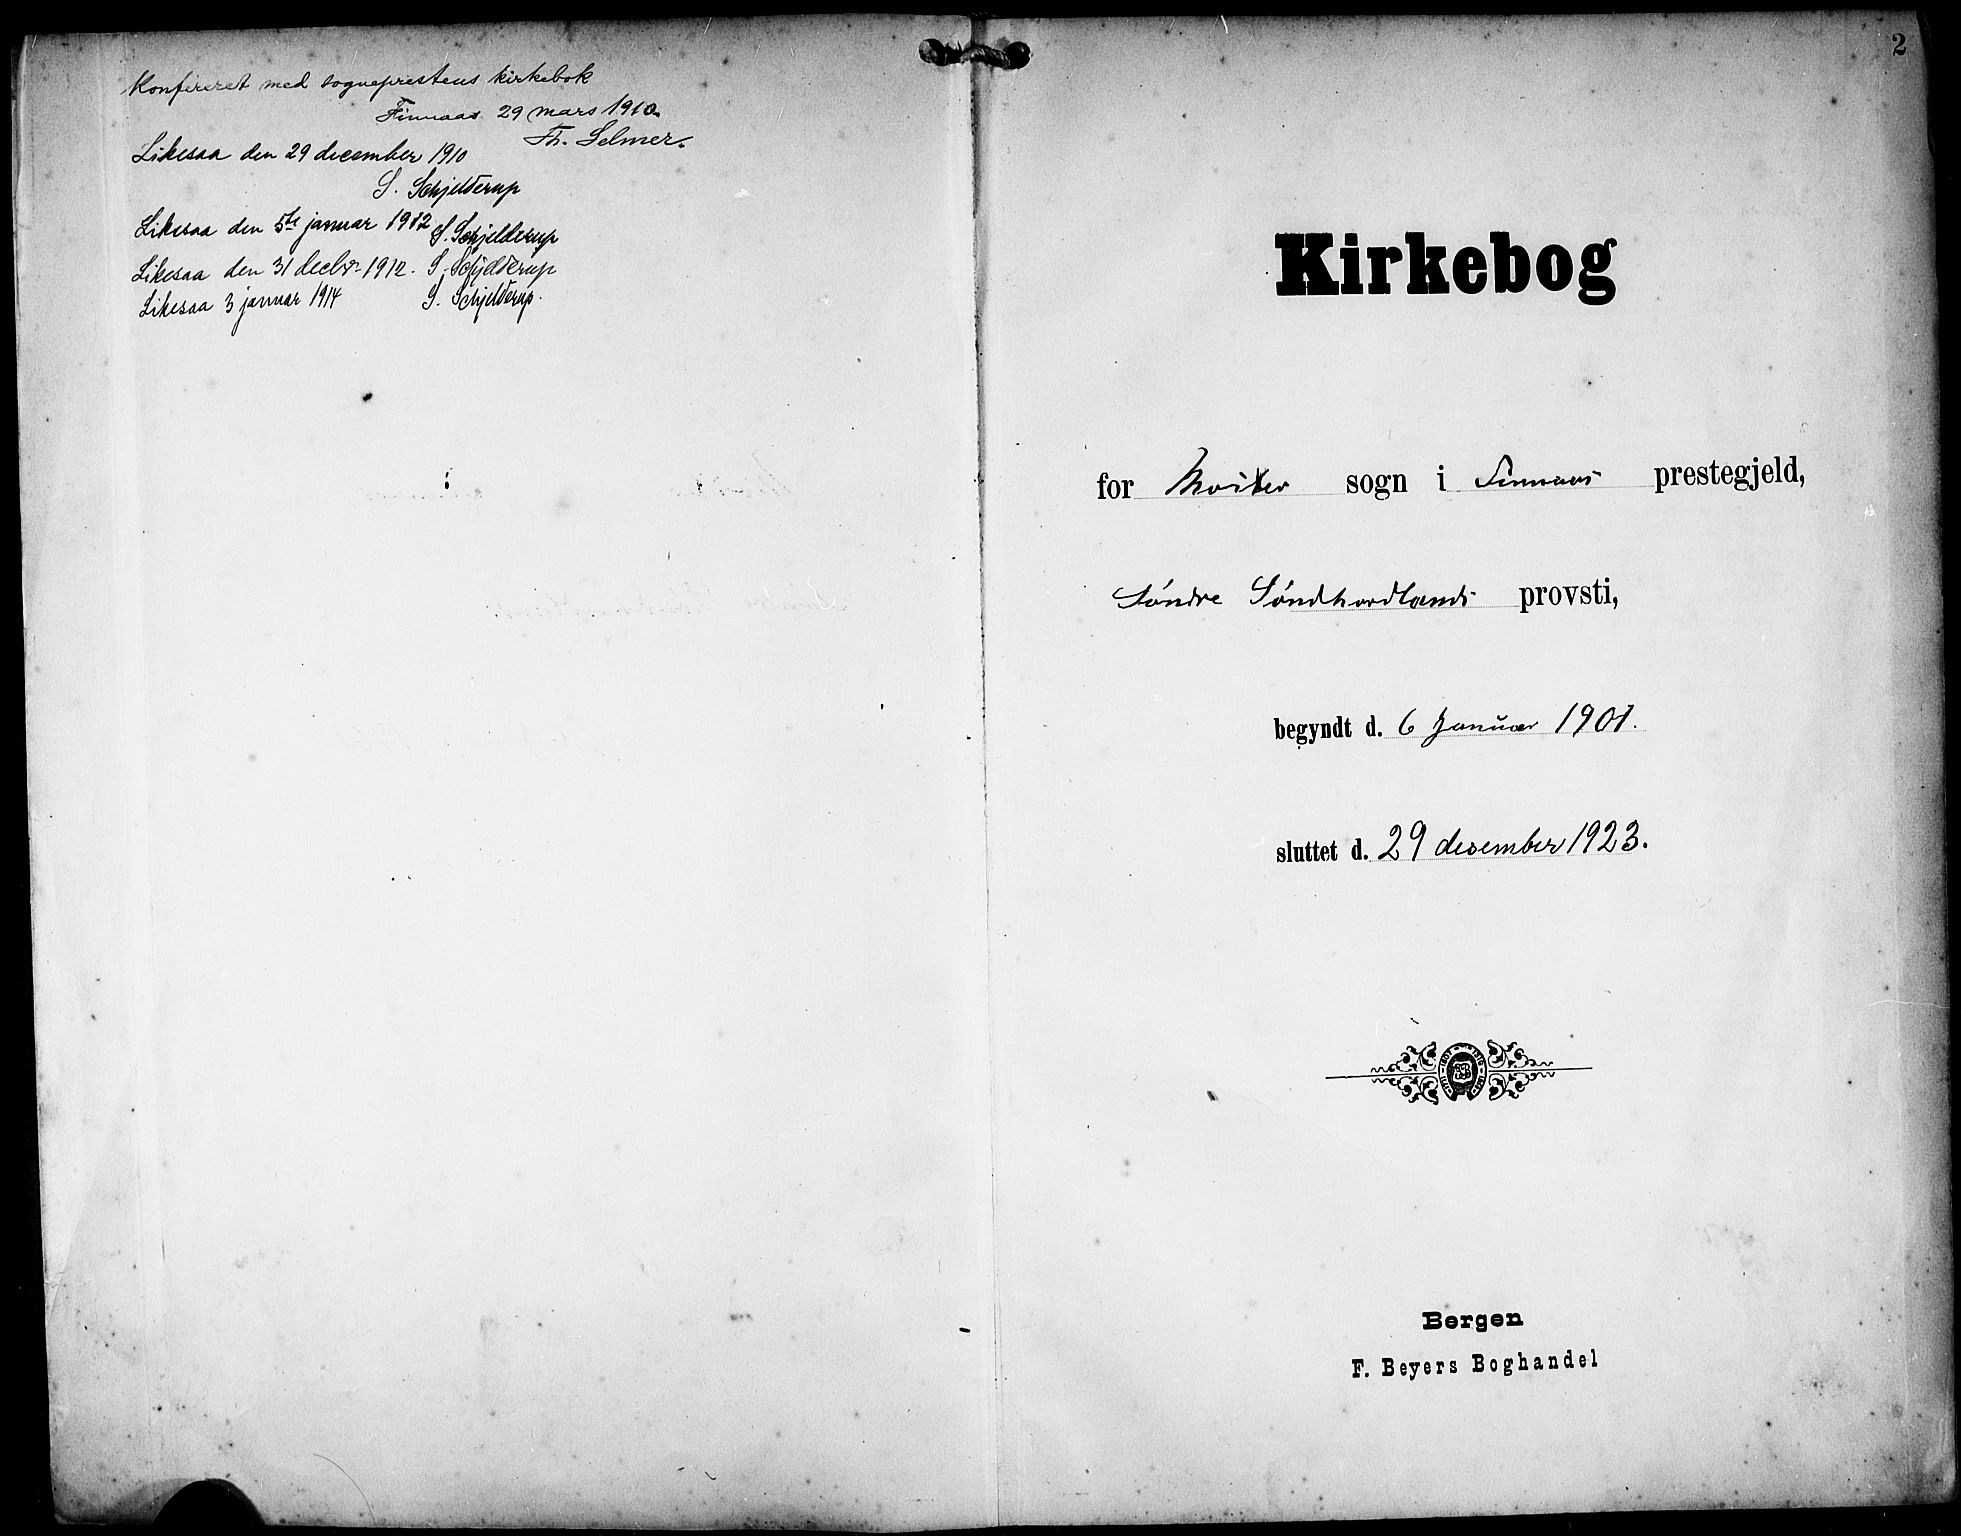 Konfereret med sogneprestens kirkebok
Finnaas 29 mars 1910.
Th. Selmer.
Likesaa den 29 december 1910
S. Schjelderup
Likesaa den 5te januar 1912 S. Schjelderup
Likesaa den 31 decbr. 1912. S. Schjelderup
Likesaa 3 januar 1914 S. Schjelderup.
2
Kirkebog
for Moster sogn i Finnaas prestegjeld,
Søndre Søndhordlands provsti,
begyndt d. 6 Januar 1901.
sluttet d. 29 desember 1923.
Bergen
F. Beyers Boghandel